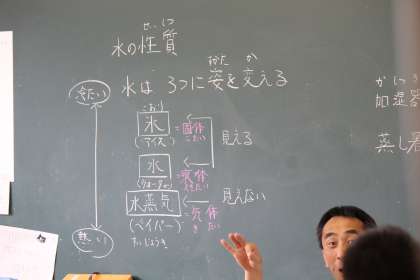 せいしつ
水の性質
すがた か
水は 3つに姿を変える
冷たい
こおり
氷 =固体
(アイス) こたい
見える
水 =液体
(ウォーター) えきたい
水蒸気 =気体
(ベイパー) きたい
すいじょうき
見えない
熱い
かしつ
加湿器
蒸し